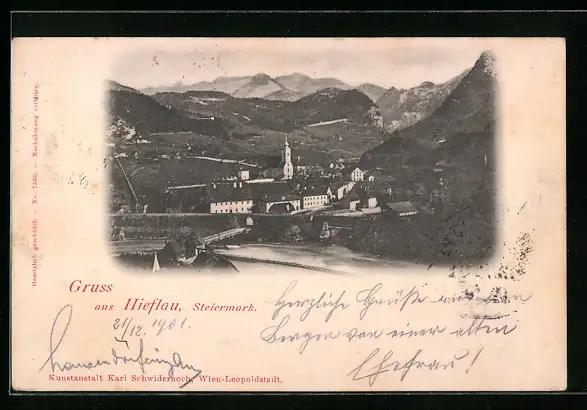 Gesetzlich geschützt. - No. 7560. - Nachahmung verboten.
Gruss
aus Hieflau, Steiermark.
21/12. 1901.
Herzliche Grüße aus den
Bergen von einer alten
Ehefrau!
Kunstanstalt Karl Schwidernoch, Wien-Leopoldstadt.